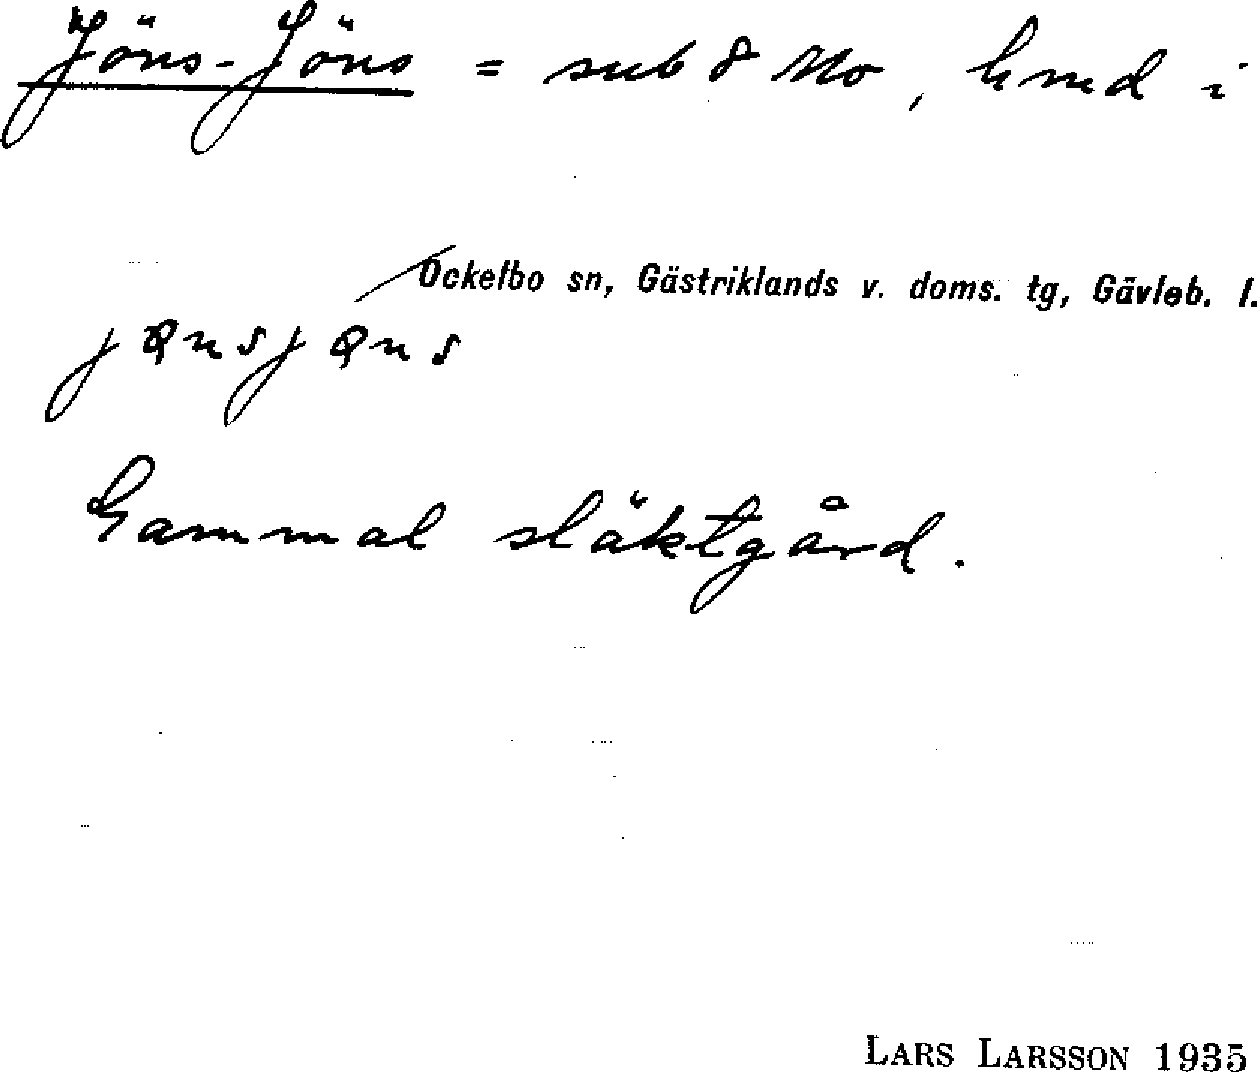 Jöns-Jöns = sub 8 Mo, hmd i
Ockelbo sn, Gästriklands v. doms. tg, Gävleb. l.
Gammal släktgård.
LARS LARSSON 1935